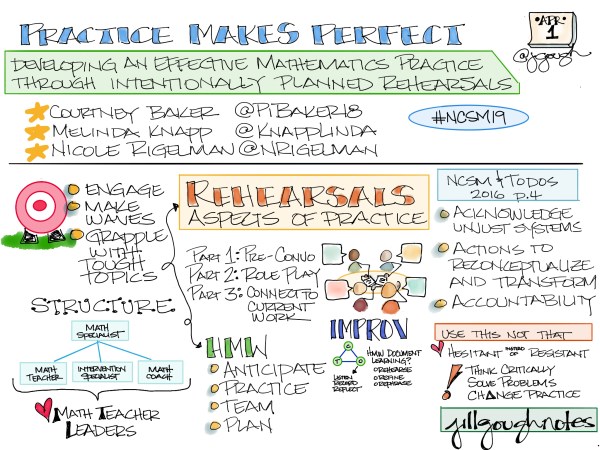 PRACTICE MAKES PERFECT
APR
1
@jgough
DEVELOPING AN EFFECTIVE MATHEMATICS PRACTICE
THROUGH INTENTIONALLY PLANNED REHEARSALS
COURTNEY BAKER @PiBAKER18
MELINDA KNAPP @KNAPPLINDA
NICOLE RIGELMAN @NRIGELMAN
#NCSM19
ENGAGE
MAKE
WAVES
GRAPPLE
WITH
TOUGH
TOPICS
REHEARSALS
ASPECTS OF PRACTICE
PART 1: PRE-CONVO
PART 2: ROLE PLAY
PART 3: CONNECT TO
CURRENT
WORK
NCSM & TODOS
2016 p.4
ACKNOWLEDGE
UNJUST SYSTEMS
ACTIONS TO
RECONCEPTUALIZE
AND TRANSFORM
ACCOUNTABILITY
STRUCTURE
MATH
SPECIALIST
MATH
TEACHER
INTERVENTION
SPECIALIST
MATH
COACH
MATH TEACHER
LEADERS
HMW
ANTICIPATE
PRACTICE
TEAM
PLAN
IMPROV
LISTEN
RECORD
REFLECT
HMW DOCUMENT
LEARNING?
REHEARSE
REFINE
REPHRASE
USE THIS NOT THAT
HESITANT INSTEAD OF RESISTANT
THINK CRITICALLY
SOLVE PROBLEMS
CHANGE PRACTICE
jillgoughnotes